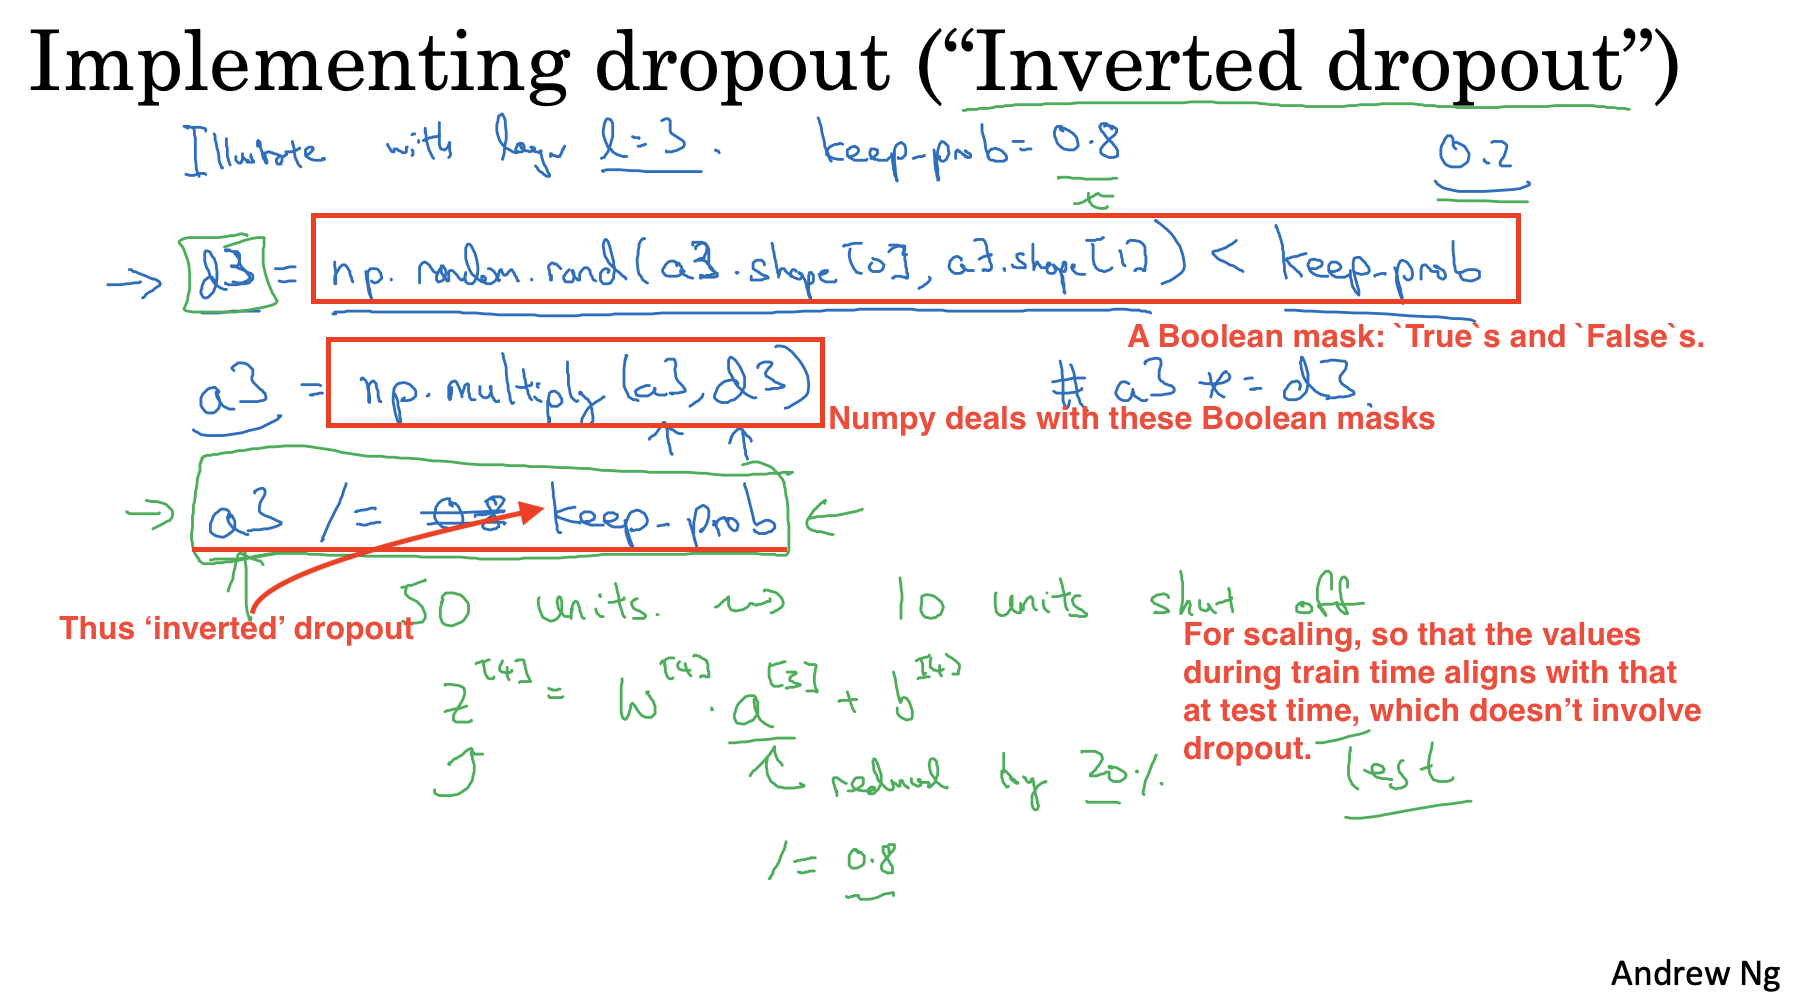 Implementing dropout (“Inverted dropout”)
Illustrate with layer l=3. keep-prob= 0.8 0.2
x
→ d3 = np.random.rand(a3.shape[0], a3.shape[1]) < keep-prob
A Boolean mask: `True`s and `False`s.
a3 = np.multiply(a3, d3) # a3 *= d3.
Numpy deals with these Boolean masks
→ a3 /= 0.8 keep-prob ←
50 units. ⇝ 10 units shut off
Thus ‘inverted’ dropout
For scaling, so that the values
during train time aligns with that
at test time, which doesn’t involve
dropout.
z[4] = W[4] . a[3] + b[4]
reduced by 20% Test
/= 0.8
Andrew Ng